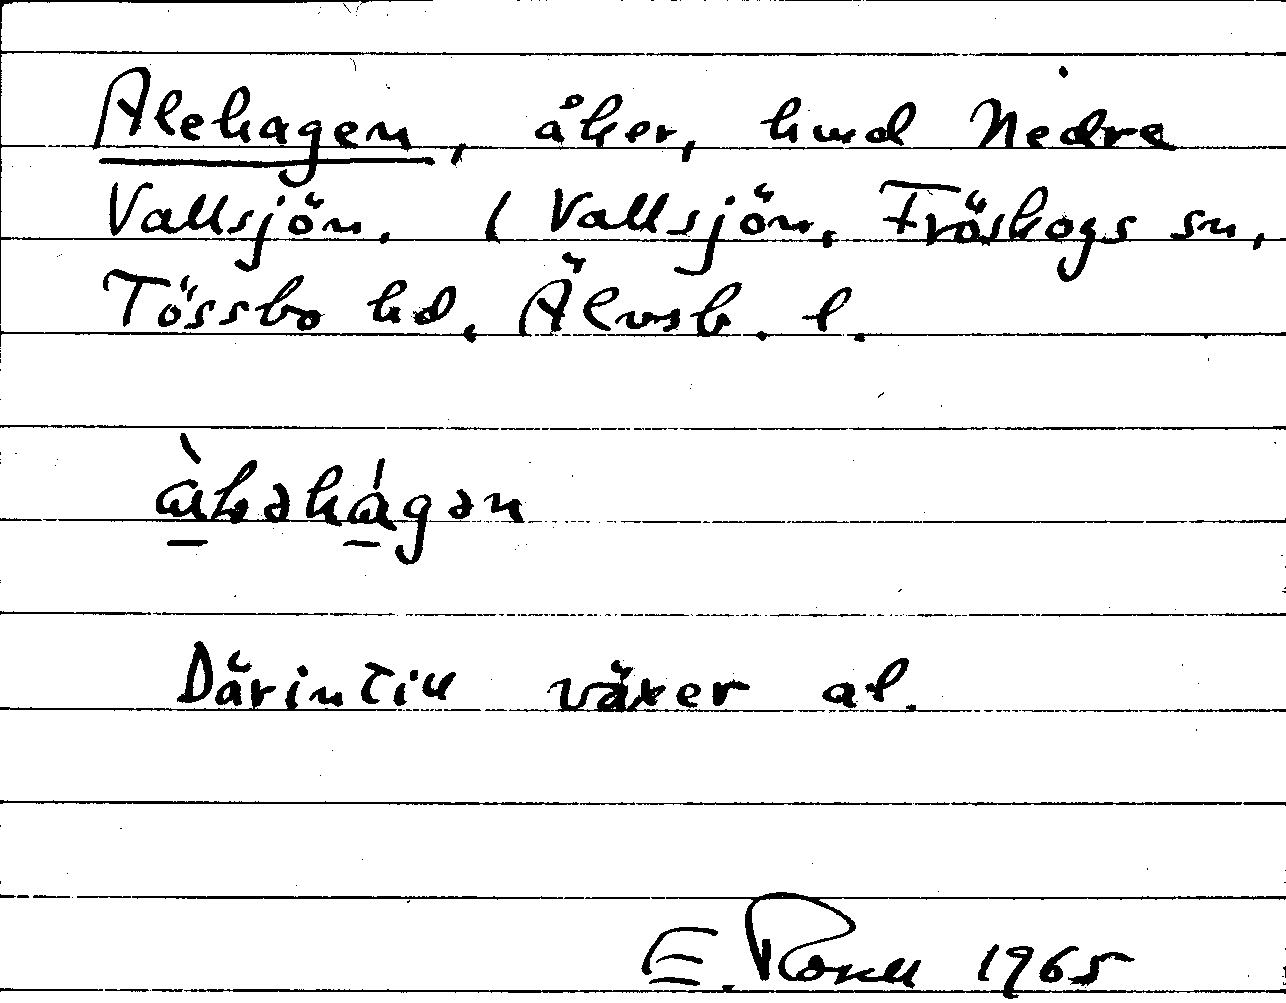 Alehagen, åker, hmd Nedre
Vallsjön. ( Vallsjön, Fröskogs sn,
Tössbo hd, Älvsb. l.
Därintill växer al.
E. 1965